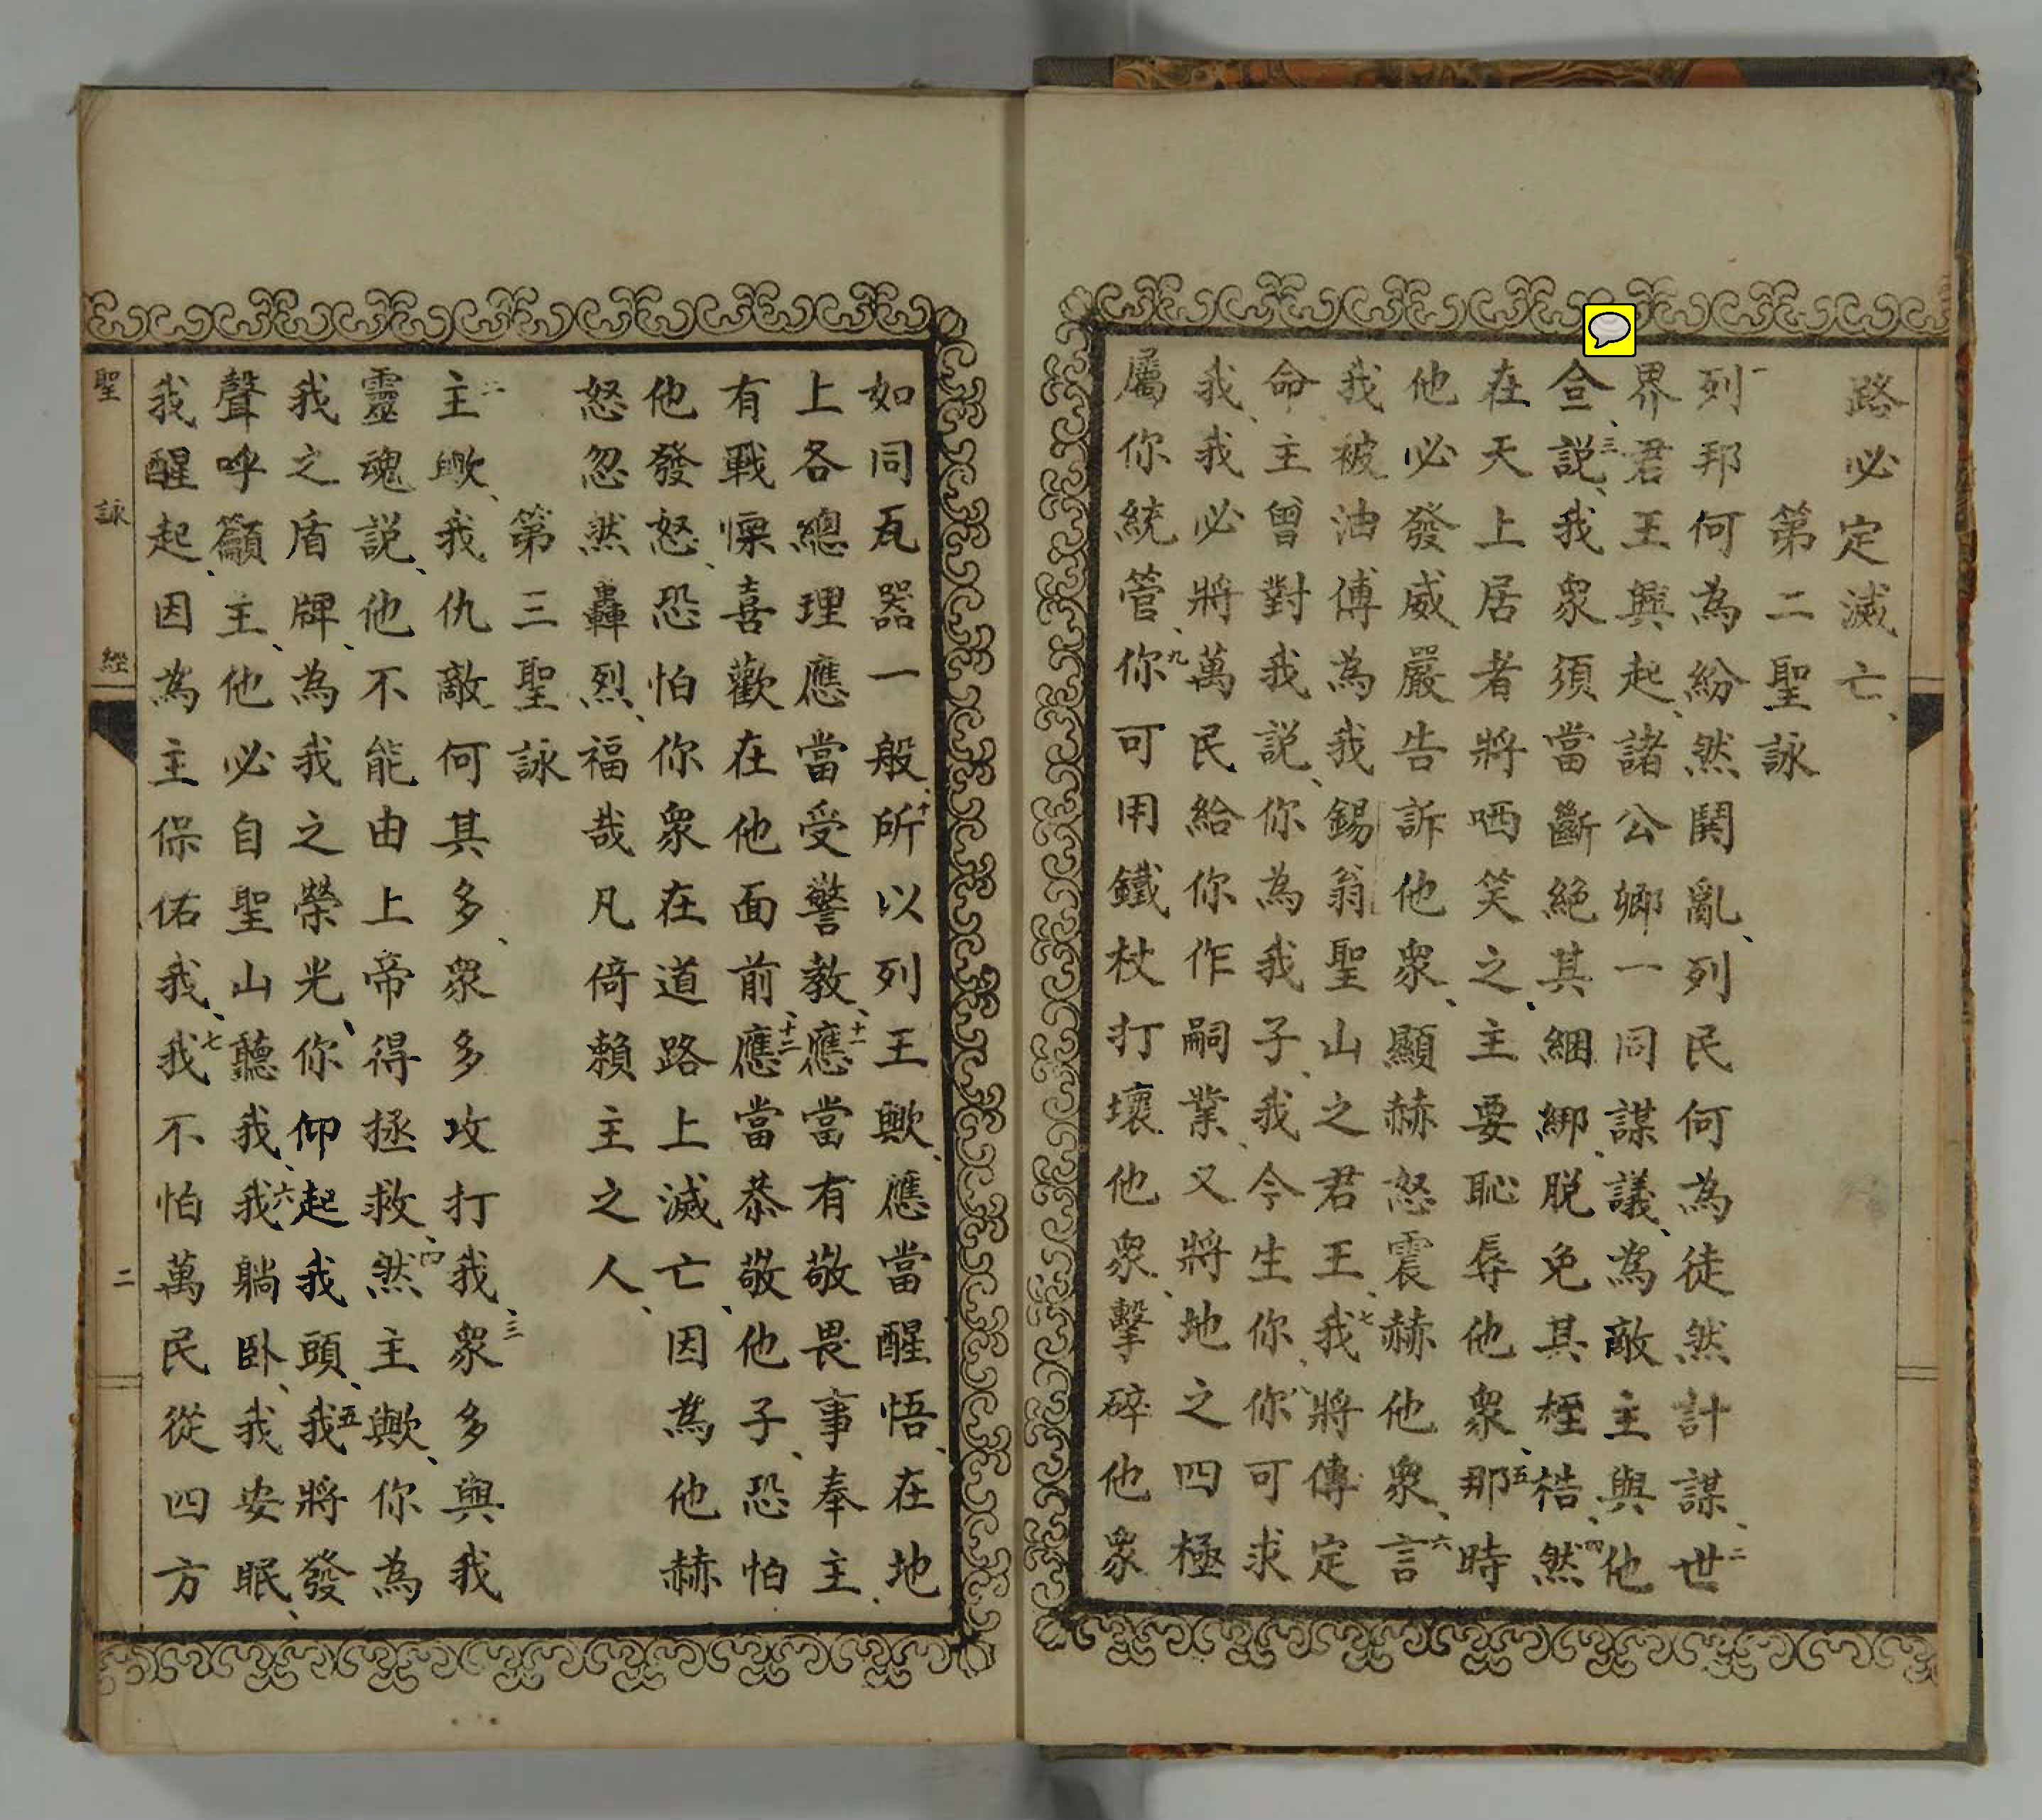 路必定滅亡、
第二聖詠
一列邦何為紛然鬨亂、列民何為徒然計謀、二世
界君王興起、諸公卿一同謀議、為敵主與他
、三說、我眾須當斷絕其綑綁、脫免其桎梏、四然
在天上居者將哂笑之、主要恥辱他眾、五那時
他必發威嚴告訴他眾、顯赫怒震赫他眾、六言
我被油傅為我錫翁聖山之君王、七我將傳定
命、主曾對我說、你為我子、我今生你、八你可求
我、我必將萬民給你作嗣業、又將地之四極
屬你統管、九你可用鐵杖打壞他眾、擊碎他眾
如同瓦器一般、十所以列王歟、應當醒悟、在地
上各總理應當受警教、十一應當有敬畏事奉主、
有戰慄喜歡在他面前、十二應當恭敬他子、恐怕
他發怒、恐怕你眾在道路上滅亡、因為他赫
怒忽然轟烈、福哉凡倚賴主之人、
第三聖詠
二主歟、我仇敵何其多、眾多攻打我、三眾多與我
靈魂說、他不能由上帝得拯救、四然主歟、你為
我之盾牌、為我之榮光、你仰起我頭、五我將發
聲呼籲主、他必自聖山聽我、六我躺卧、我安眠、
我醒起、因為主保佑我、七我不怕萬民從四方
聖詠經 二